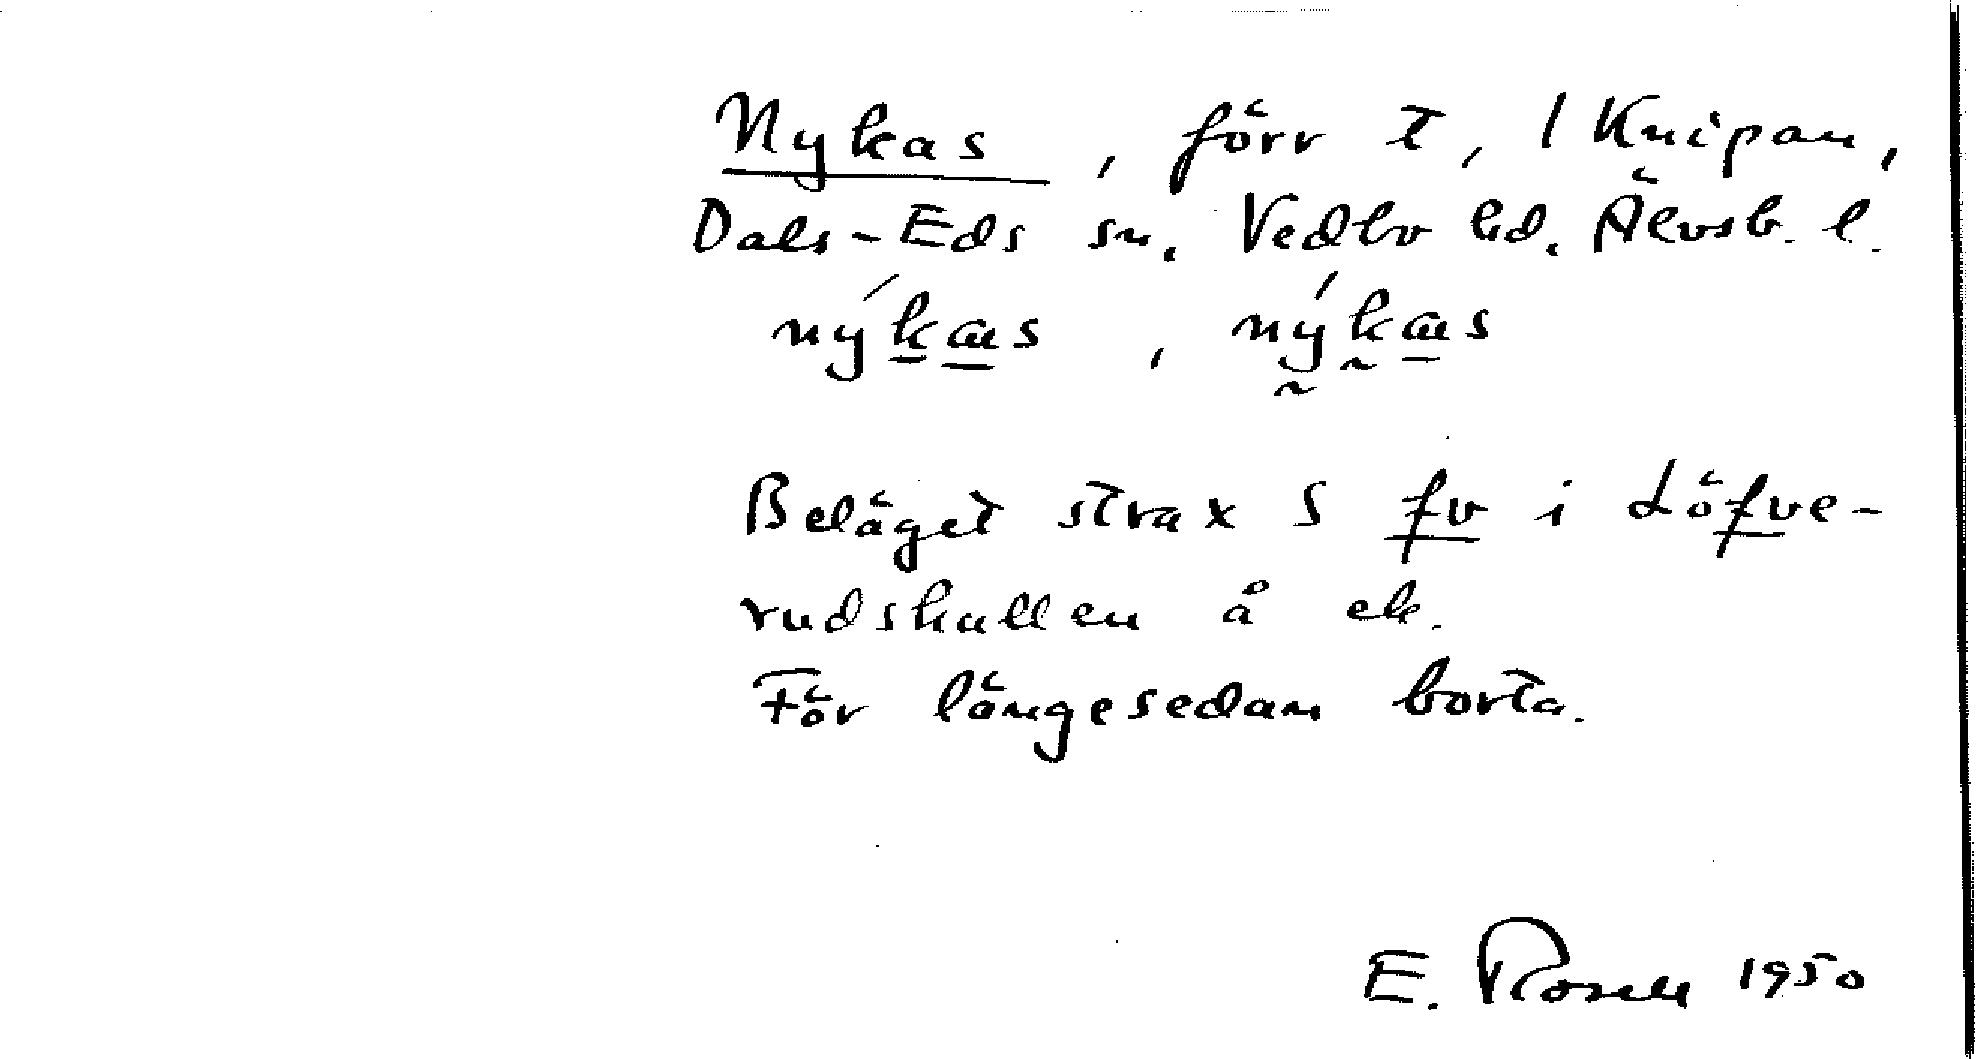 Nykas, förr t, 1 Knipan,
Dals-Eds sn. Vedbo hd. Älvsb. l.
nýkas, nýkas
Beläget strax S fv i Löfve-
rudshallen å ek.
För längesedan borta.
E. Rosell 1950